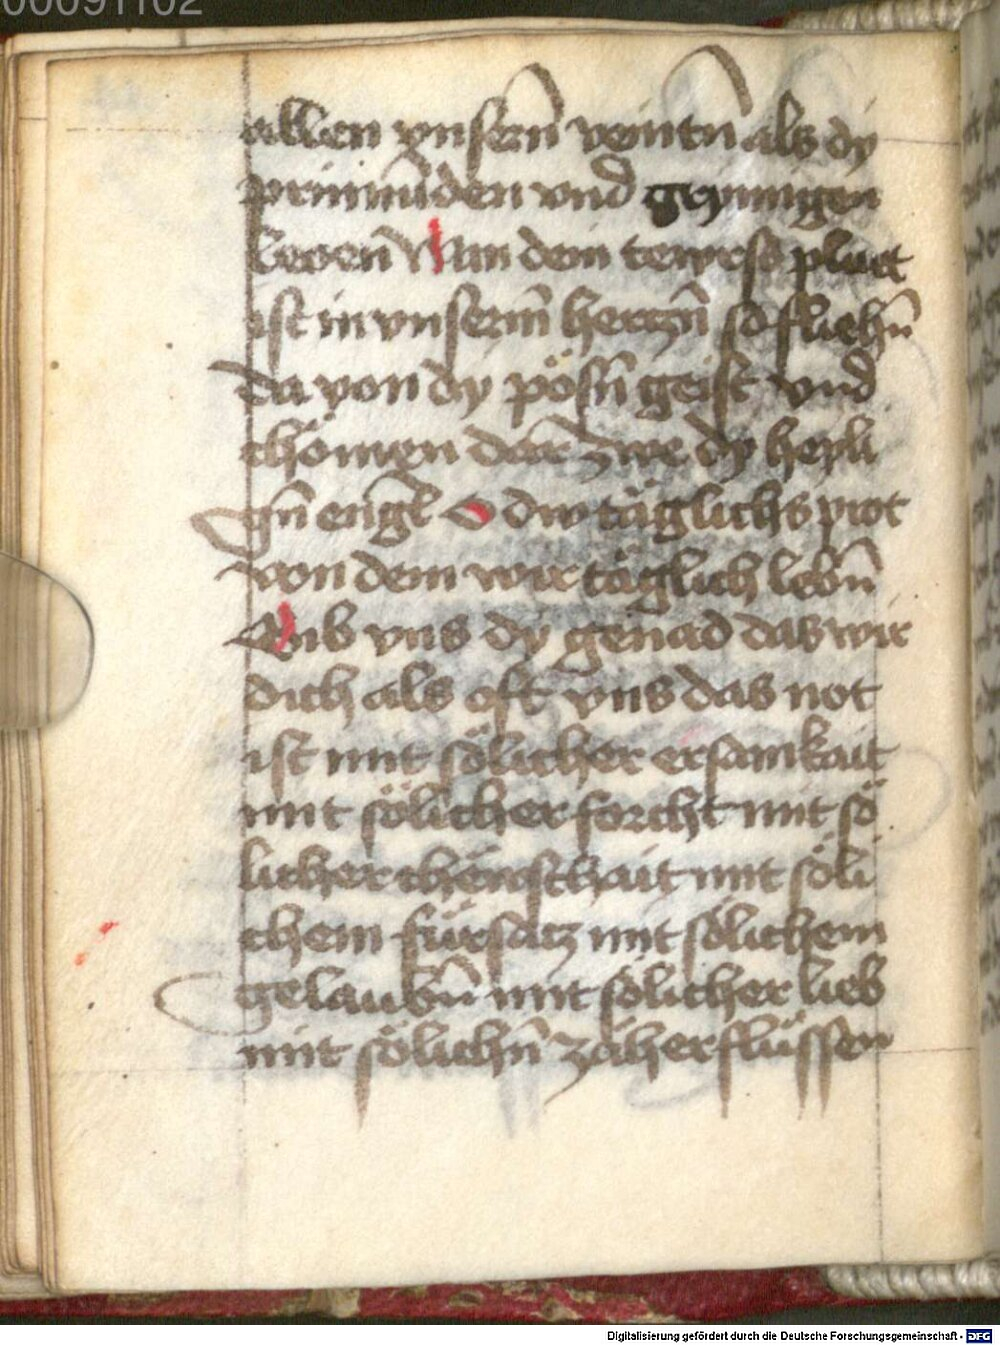 00091102
allen vnsern̄ veintn̄ als dy
prinnn̄den vnd gynnigen
lewen̄ Wan dein tewrss pluet
ist in vnserm̄ hertzn̄ so fliehn̄
da von dy pösn̄ geist vnd
chömen dar zwe dy heyli
gn̄ engl O dw täglichs prot
von dem wir täglich lebn̄
Gib vns dy genad das wir
dich als oft vns das not
ist mit sölicher ersamkait
mit sölicher forcht mit sö
licher chewschait mit söli
chem fürsatz mit sölichem
gelaubn̄ mit sölicher lieb
mit sölichn̄ zäherflüssen
Digitalisierung gefördert durch die Deutsche Forschungsgemeinschaft - DFG